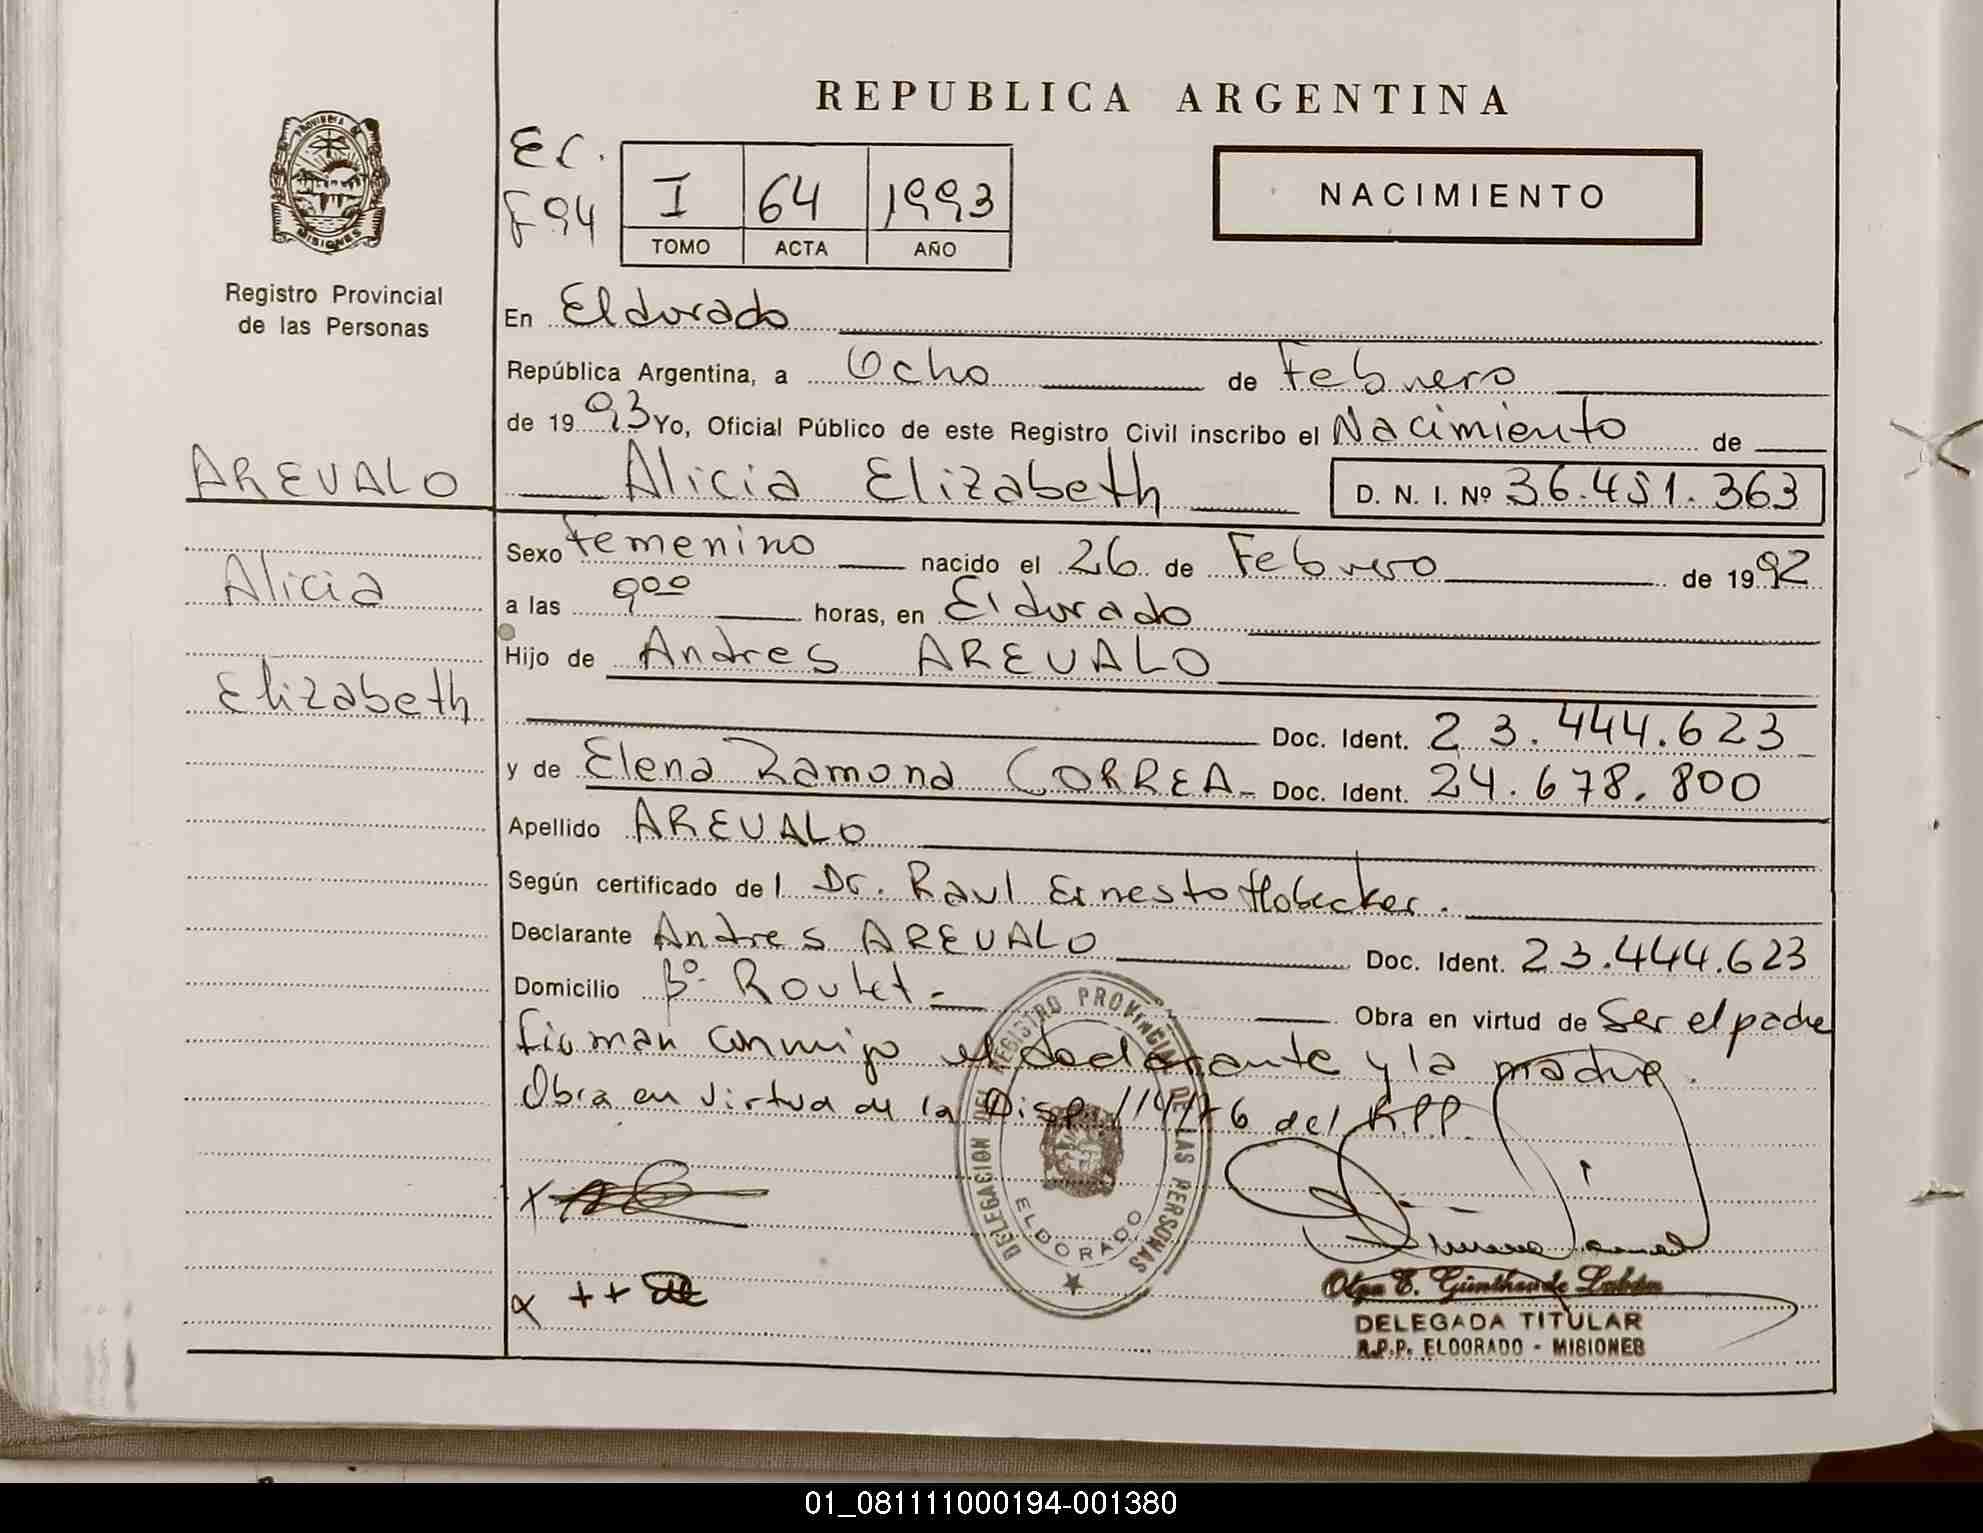 REPUBLICA ARGENTINA
PROVINCIA DE
MISIONES
Registro Provincial
de las Personas
Ec.
F 94
I 64 1993
TOMO ACTA AÑO
NACIMIENTO
En Eldorado
República Argentina, a Ocho de Febrero
de 1993 Yo, Oficial Público de este Registro Civil inscribo el Nacimiento de
AREVALO
Alicia Elizabeth D. N. I. Nº 36.451.363
Sexo Femenino nacido el 26 de Febrero de 1992
Alicia
a las 9 00 horas, en Eldorado
Hijo de Andres AREVALO
Elizabeth
Doc. Ident. 23.444.623
y de Elena Ramona CORREA Doc. Ident. 24.678.800
Apellido AREVALO
Según certificado del Dr. Raul Ernesto Hobecker.
Declarante Andres AREVALO Doc. Ident. 23.444.623
Domicilio Bº Roulet Obra en virtud de Ser el padre
firman conmigo el declarante y la madre.
Obra en virtud de la Disp. 114/76 del RPP.
DELEGACION DEL REGISTRO PROVINCIAL DE LAS PERSONAS
ELDORADO
Olga E. Günther de
DELEGADA TITULAR
R.P.P. ELDORADO - MISIONES
01_081111000194-001380